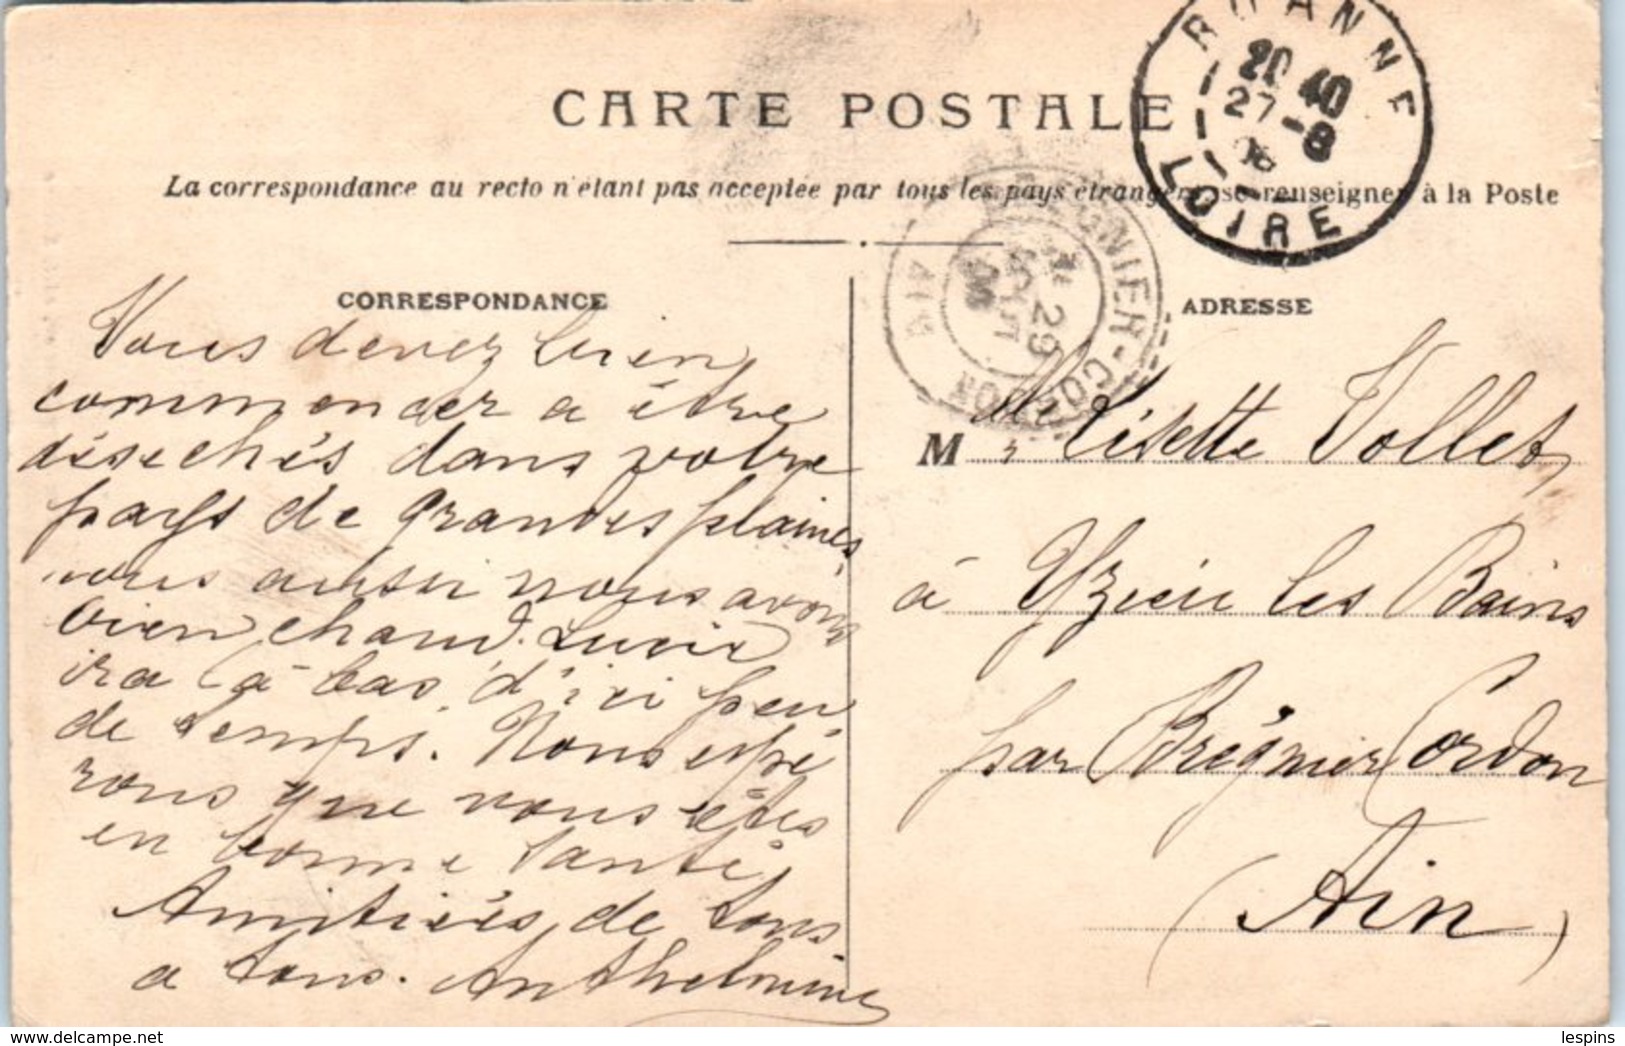 CARTE POSTALE
La correspondance au recto n'étant pas acceptée par tous les pays étrangers, se renseigner à la Poste
ROANNE
20 40
27 -8
06
LOIRE
BREGNIER-CORDON
29
AOUT
06
AIN
CORRESPONDANCE
Vous devez bien
commencer a être
désechés dans votre
pays de grandes plaines
nous aussi nous avons
bien chaud. Lucie
ira là bas d'ici peu
de temps. Nous espé
rons que vous êtes
en bonne santé
Amitiés de tous
a tous. Anthelmine
ADRESSE
M Lisette Vollet
à Yzieu les Bains
par Brégnier Cordon
(Ain)
lespins